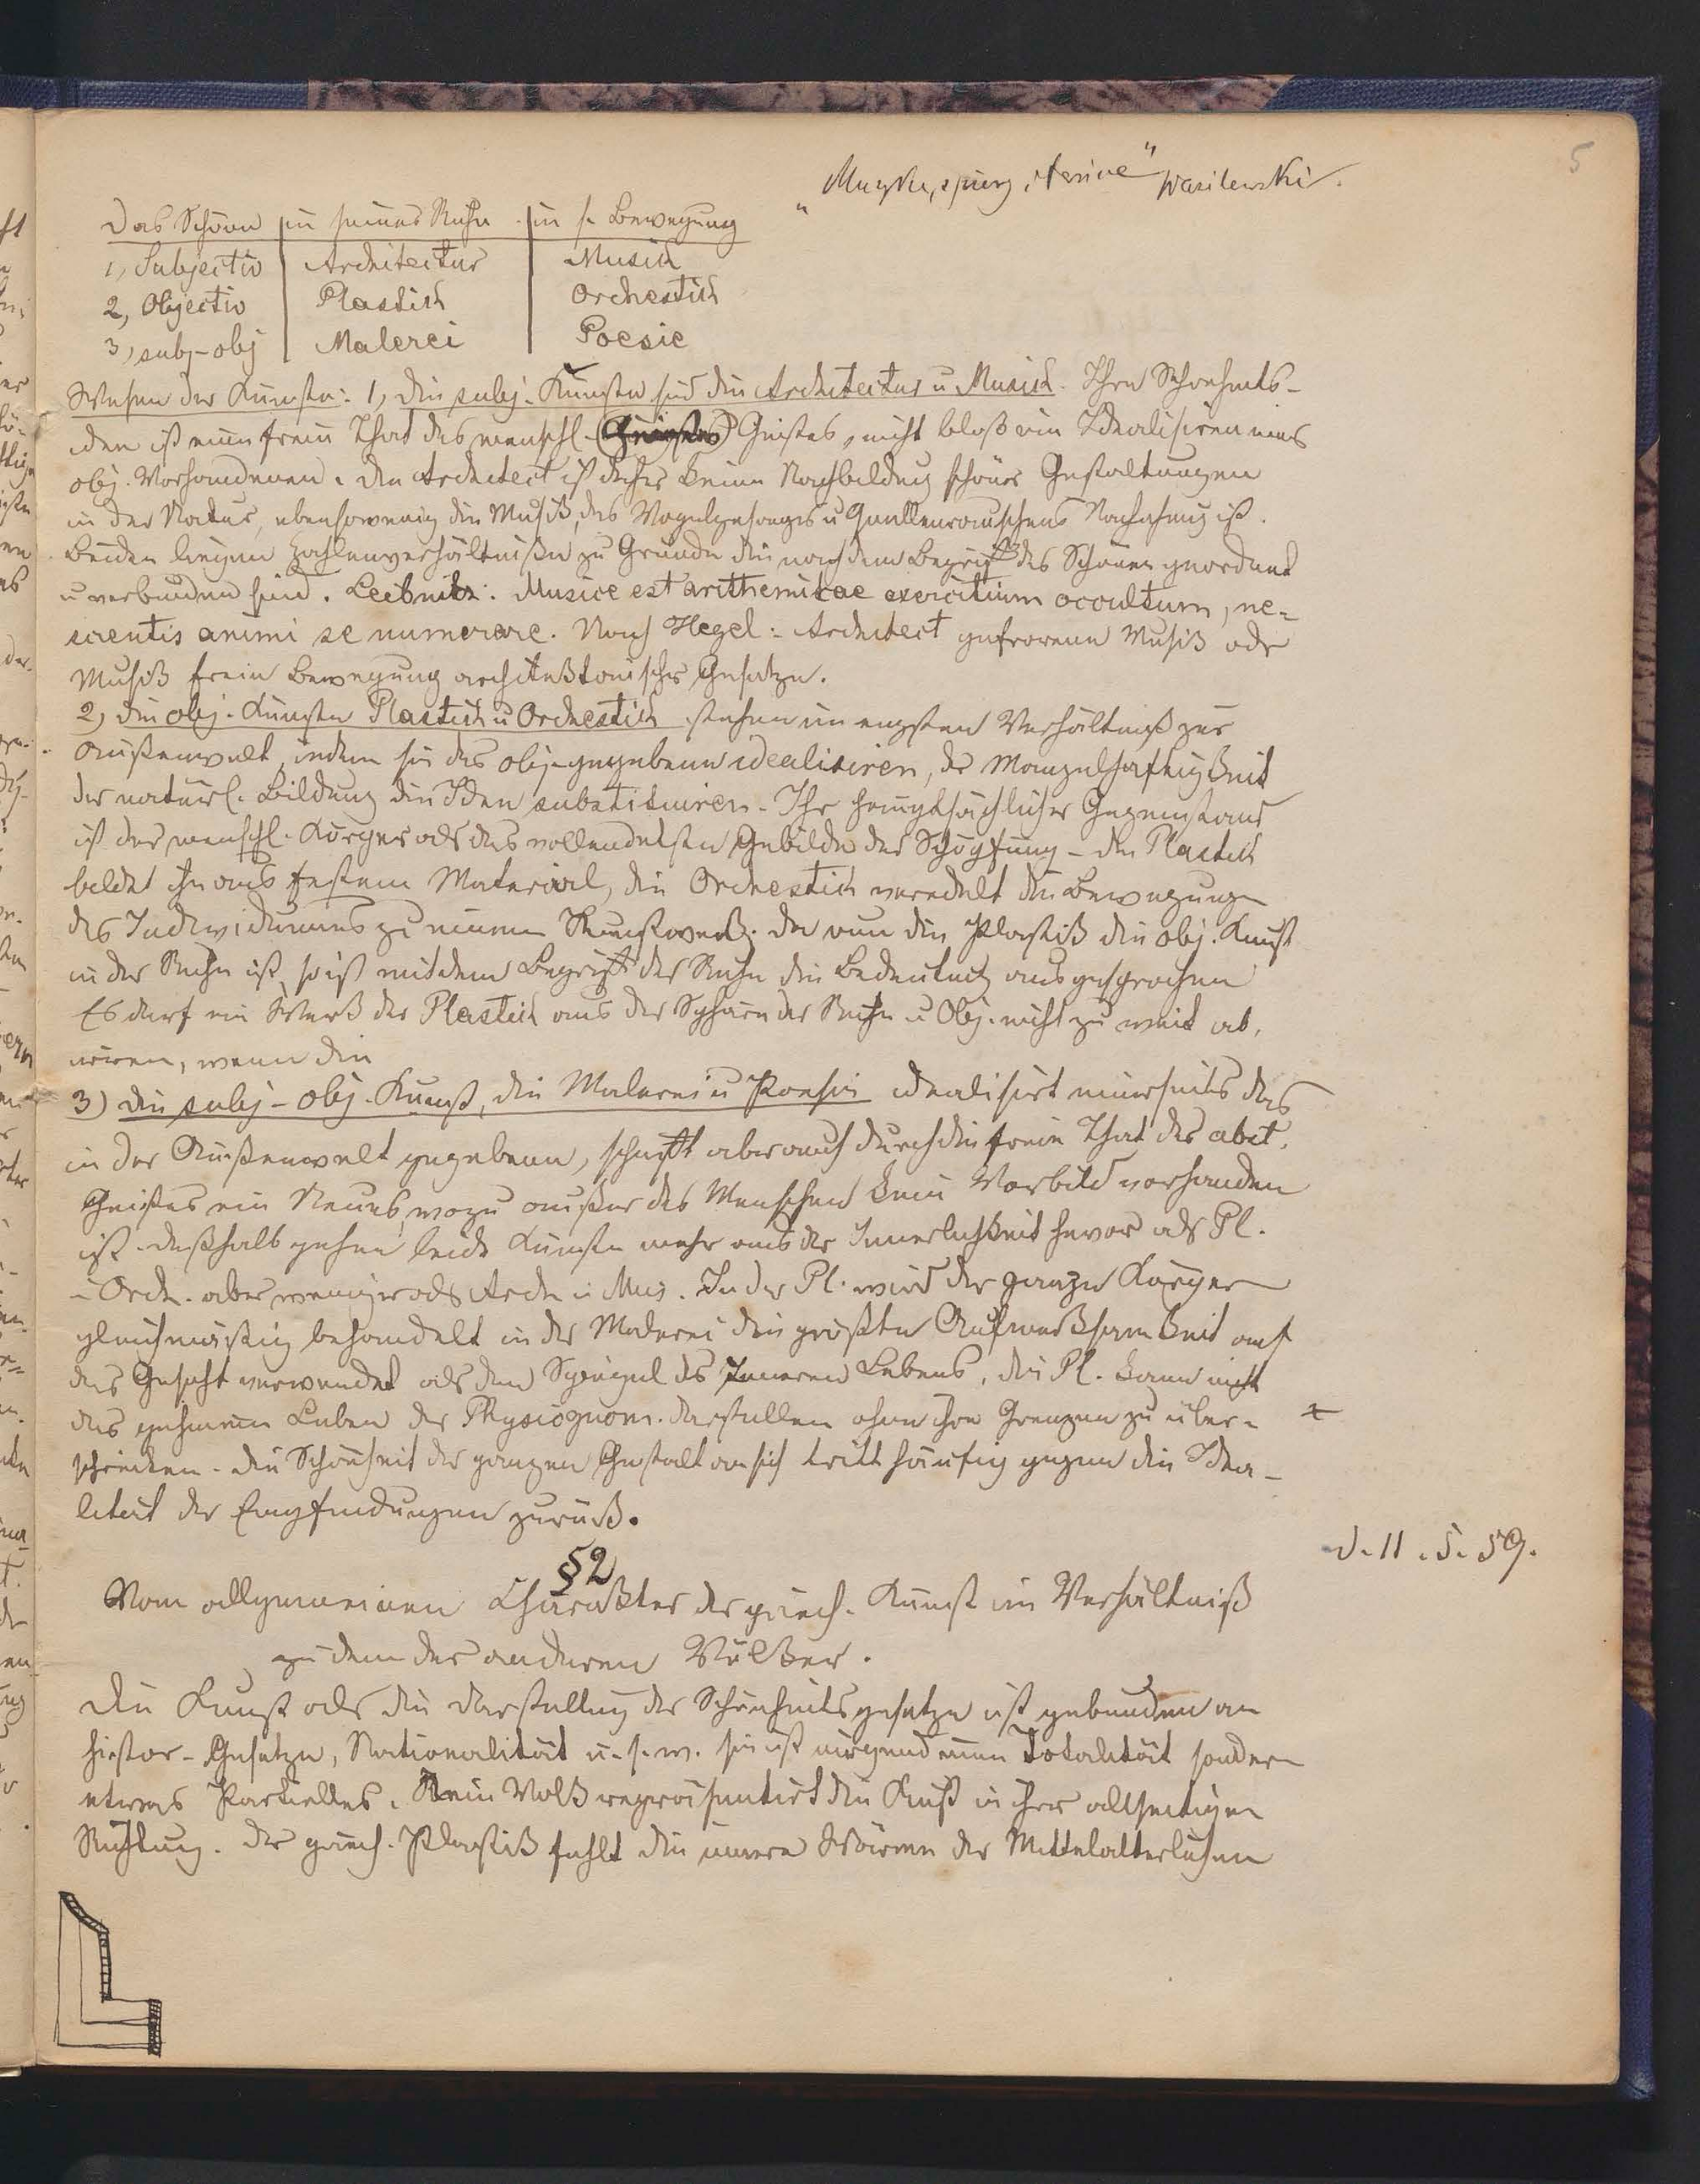 5
Wasilewski.
Das Schöne | in seiner Ruhe | in s. Bewegung
1, Subjectiv | Architectur | Musik
2, Objectiv | Plastik | Orchestik
3, subj-obj | Malerei | Poesie
Wesen der Künste: 1, die subj. Künste sind die Architectur u Musick. Ihre Schönheits-
idee ist eine freie That des menschl. (Geistes) Geistes, nicht bloß ein Idealisiren eines
obj. Vorhandenen. Die Architect ist daher keine Nachbildung schöner Gestaltungen
in der Natur, ebensowenig die Musik, des Vogelgesanges u Quellenrauschens Nachahmung ist.
Beiden liegen Zahlenverhältniße zu Grunde die nach dem Begriff des Schönen geordnet
u verbunden sind. Leibnitz: Musice est arithemitcae exercitium occultum, ne-
scientis animi se numerare. Nach Hegel: Architect gefrorene Musik oder
Musik freie Bewegung architektonischer Gesetze.
2, die obj. Künste Plastick u Orchestick stehen im engsten Verhältniß zur
Außenwelt, indem sie das obj. gegebene idealisiren, der Mangelhaftigkeit
der natürl. Bildung die Idee substituiren. Ihr hauptsächlicher Gegenstand
ist der menschl. Körper als das vollendetste Gebilde der Schöpfung – die Plastick
bildet ihn aus festem Material, die Orchestick veredelt die Bewegungen
des Individuums zu einem Kunstwerk. Da nun die Plastik die obj. Kunst
in der Ruhe ist, so ist mit dem Begriff der Ruhe die Bedeutung ausgesprochen
Es darf ein Werk der Plastick aus der Sphäre der Ruhe u Obj. nicht zu weit ab,
irren, wenn die
3) die subj-obj. Kunst, die Malerei u Poesie idealisirt einerseits das
in der Außenwelt gegebene, schafft aber auch durch die freie That des abst.
Geistes ein Neues, wozu außer des Menschen kein Vorbild vorhanden
ist. deßhalb gehen beide Künste mehr aus der Innerlichkeit hervor als Pl.
u Orch. aber weniger als Arch u Mus. In der Pl. wird der ganze Körper
gleichmäßig behandelt in der Malerei die größte Aufmerksamkeit auf
das Gesicht verwendet als den Spiegel des Inneren Lebens, die Pl. kann nicht
das geheime Leben der Physiognom. darstellen ohne ihre Grenzen zu über-
schreiten. Die Schönheit der ganzen Gestalt an sich tritt häufig gegen die Idea-
lität der Empfindungen zurück.
d. 11. 5. 59.
§2
Vom allgemeinen Charakter der griech. Kunst im Verhältniß
zu dem der anderen Völker.
Die Kunst als die Darstellung der Schönheitsgesetze ist gebunden an
histor. Gesetze, Nationalität u. s. w. sie ist nirgend eine Totalität sondern
etwas Partielles. Kein Volk repräsentirt die Kunst in ihrer allseitigen
Richtung. Der griech. Plastik fehlt die innere Wärme der Mittelalterlichen